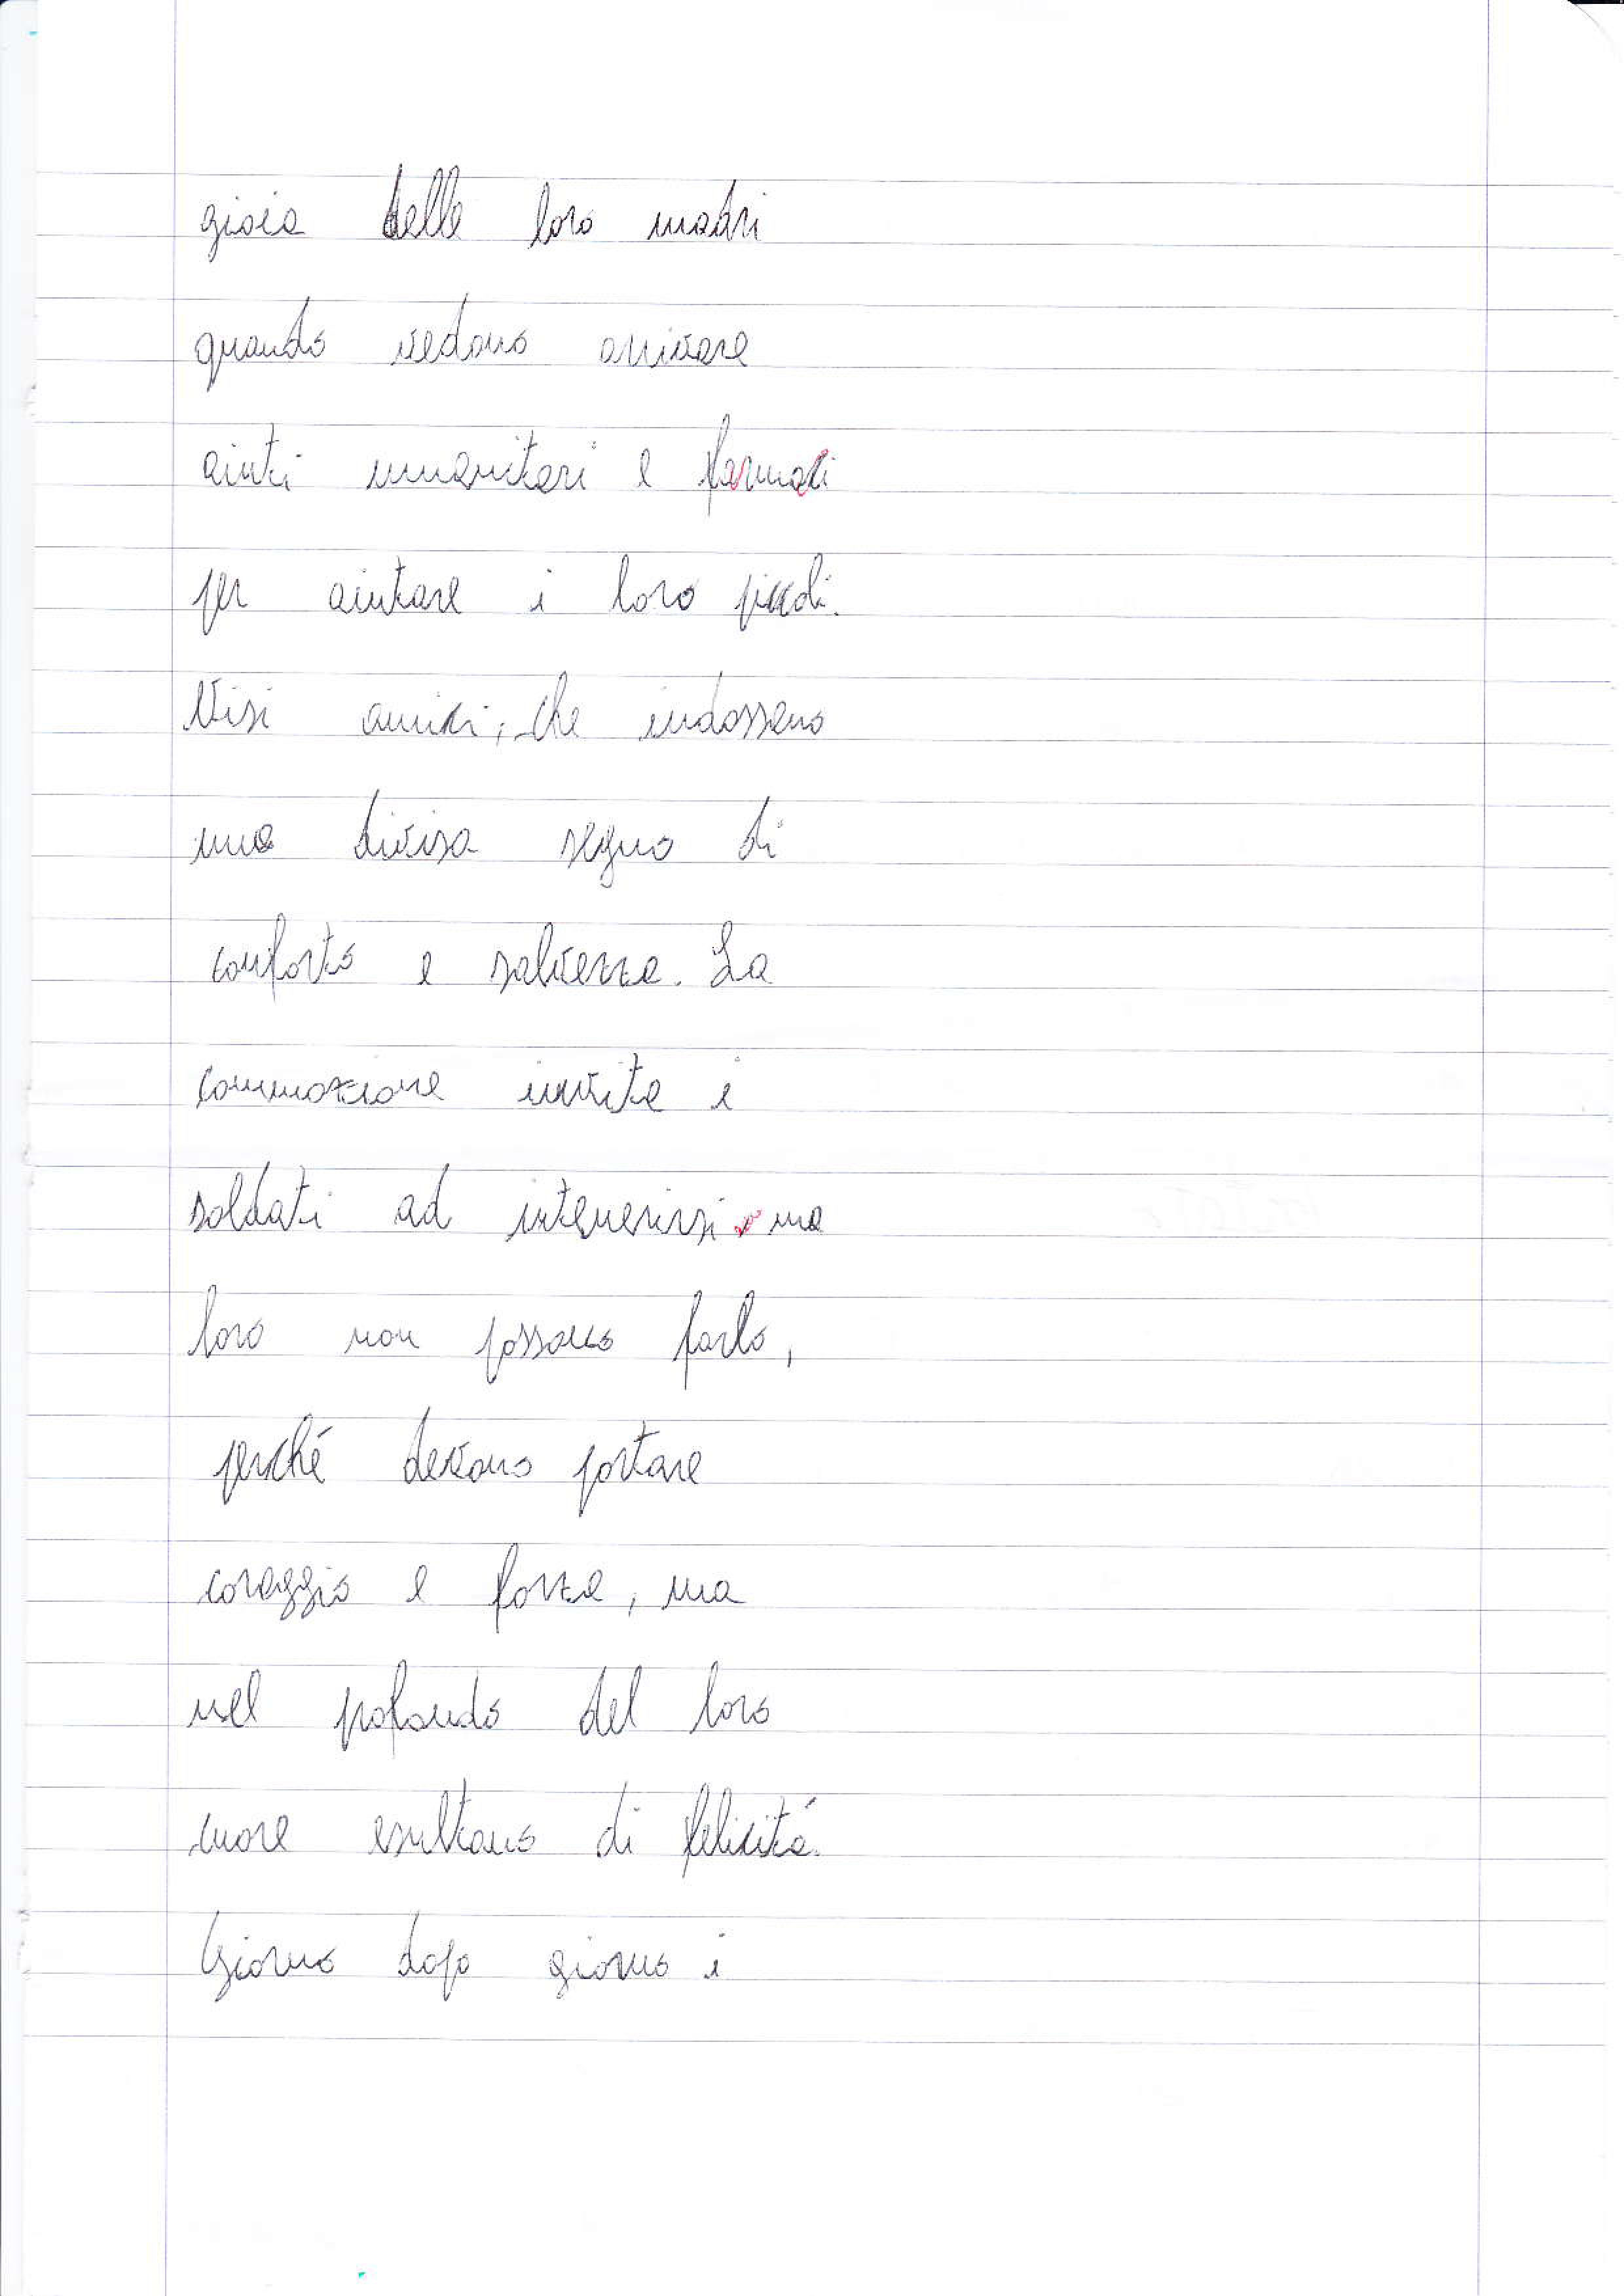 gioia delle loro madri
quando vedono arrivare
aiuti umanitari e farmaci
per aiutare i loro piccoli.
Visi amici, che indossano
una divisa segno di
conforto e salvezza. La
commozione invita i
soldati ad intenerirsi ma
loro non possono farlo,
perché devono portare
coraggio e forza, ma
nel profondo del loro
cuore esultano di felicitá.
Giorno dopo giorno i